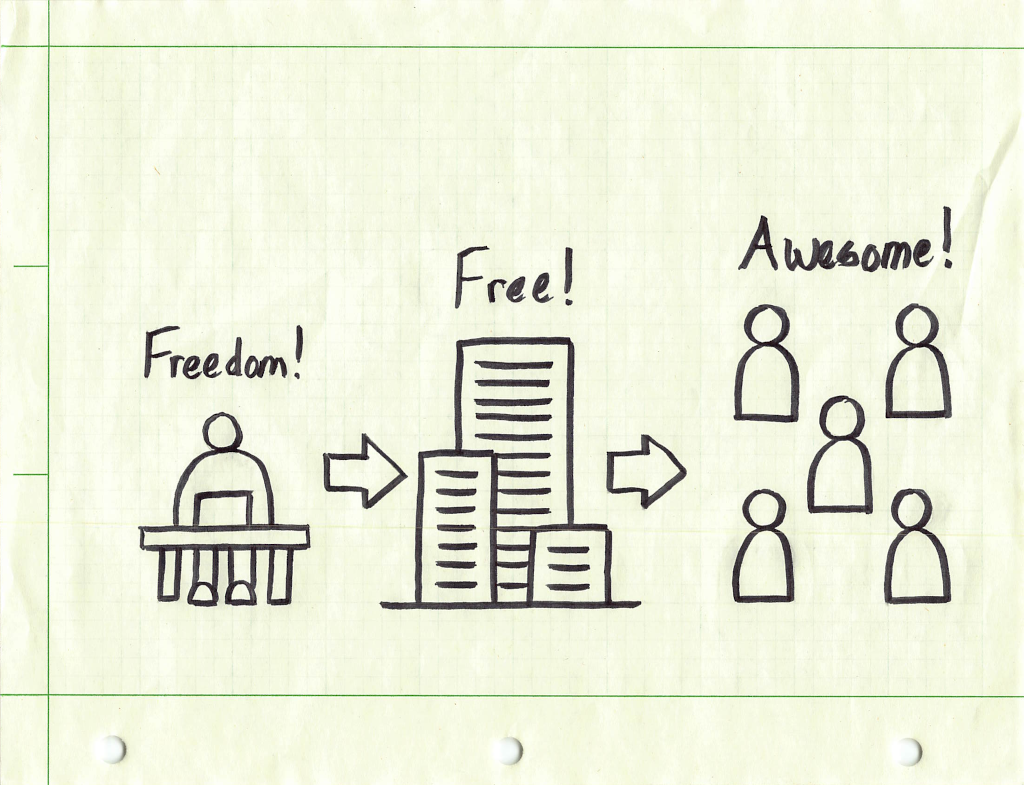 Freedom!
Free!
Awesome!